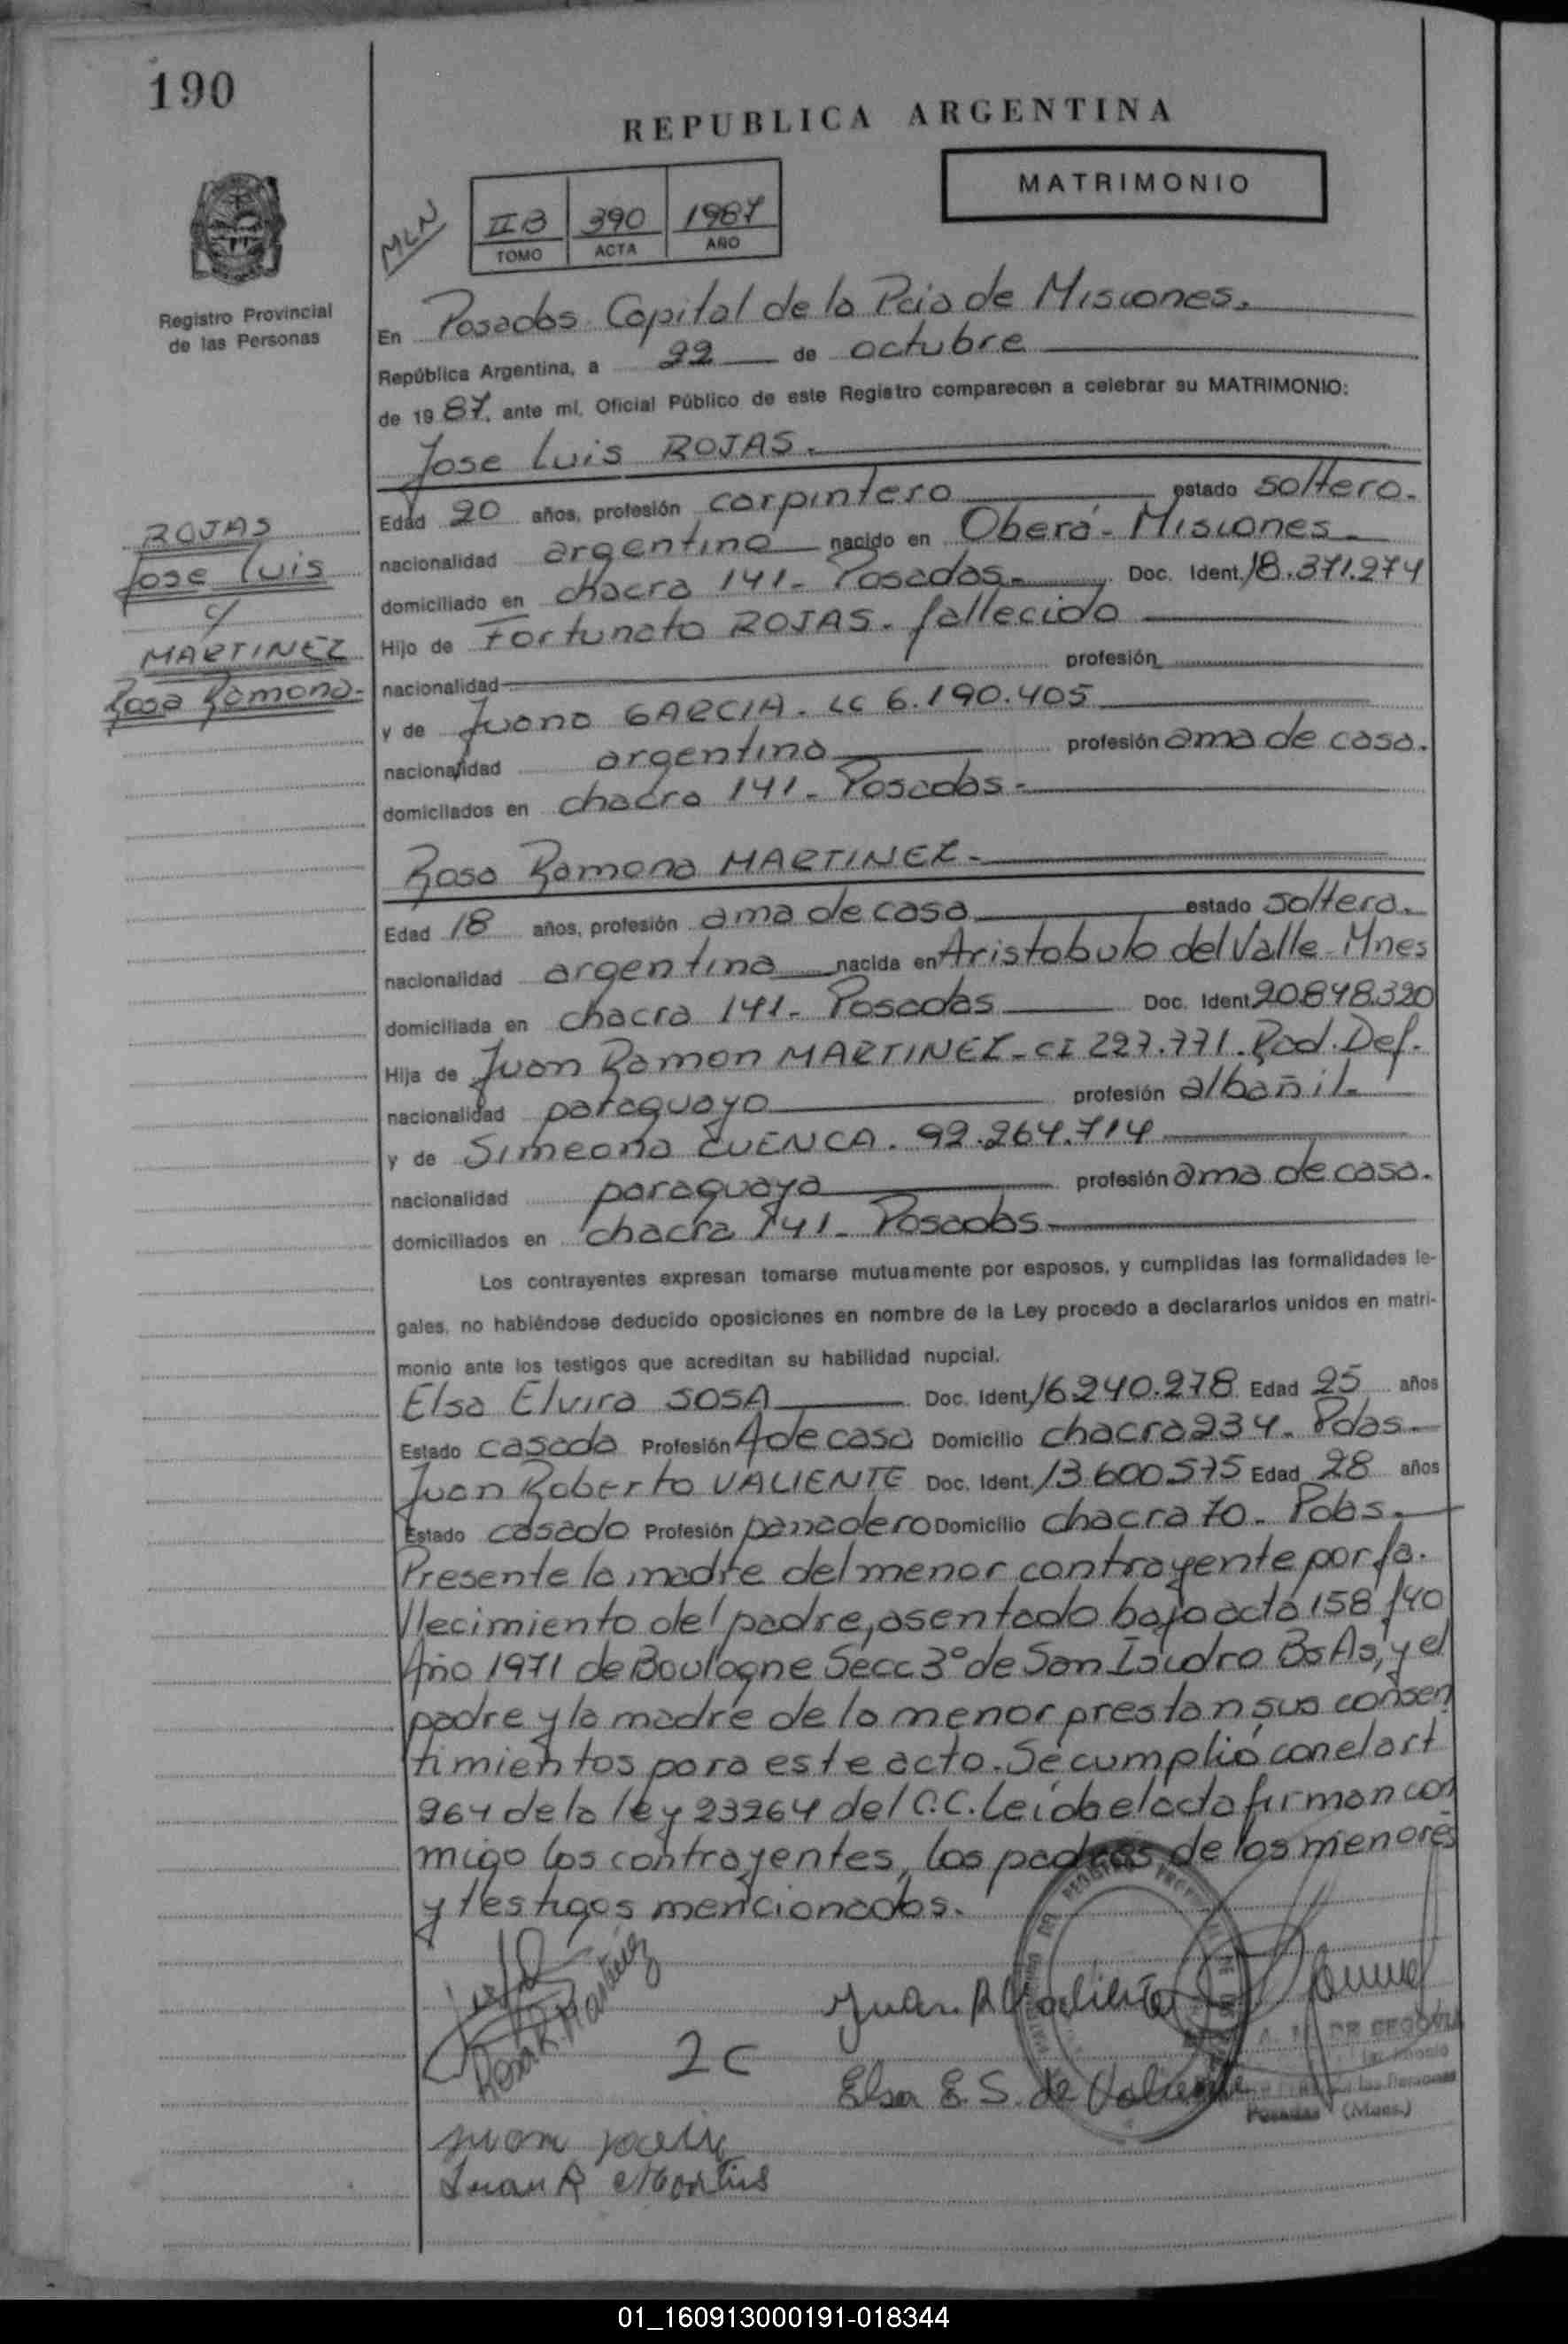 190
REPUBLICA ARGENTINA
MATRIMONIO
MLN
II B 390 1987
TOMO ACTA AÑO
Registro Provincial
de las Personas
En Posadas Capital de la Pcia de Misiones.
República Argentina, a 22 de octubre
de 1987. ante mí. Oficial Público de este Registro comparecen a celebrar su MATRIMONIO:
Jose Luis ROJAS.
Edad 20 años, profesión carpintero estado soltero.
nacionalidad argentino nacido en Oberá - Misiones.
domiciliado en chacra 141 - Posadas. Doc. Ident. 18.371.274
Hijo de Fortunato ROJAS. fallecido
nacionalidad profesión
y de Juana GARCIA. LC 6.190.405
nacionalidad argentina profesión ama de casa.
domiciliados en chacra 141 - Posadas.
ROJAS
Jose Luis
y
MARTINEZ
Rosa Ramona.
Rosa Ramona MARTINEZ.
Edad 18 años, profesión ama de casa estado soltera.
nacionalidad argentina nacida en Aristobulo del Valle - Mnes
domiciliada en chacra 141 - Posadas Doc. Ident. 20.848.320
Hija de Juan Ramon MARTINEZ - CI 227.771. Rad. Def.
nacionalidad paraguayo profesión albañil.
y de Simeona CUENCA. 92.264.714
nacionalidad paraguaya profesión ama de casa.
domiciliados en chacra 141 - Posadas
Los contrayentes expresan tomarse mutuamente por esposos, y cumplidas las formalidades le-
gales, no habiéndose deducido oposiciones en nombre de la Ley procedo a declararlos unidos en matri-
monio ante los testigos que acreditan su habilidad nupcial.
Elsa Elvira SOSA Doc. Ident. 16.240.278 Edad 25 años
Estado casada Profesión A de casa Domicilio chacra 234. Pdas.
Juan Roberto VALIENTE Doc. Ident. 13.600.575 Edad 28 años
Estado casado Profesión panadero Domicilio chacra 70. Pdas.
Presente la madre del menor contrayente por fa-
llecimiento del padre, asentado bajo acta 158 f40
Año 1971 de Boulogne Secc 3º de San Isidro Bs As, y el
padre y la madre de la menor prestan sus consen
timientos para este acto. Se cumplió con el art
264 de la ley 23264 del C.C. Leída el acta firman con
migo los contrayentes, los padres de los menores
y testigos mencionados.
Rosa R. Martínez
Juan R Valiente
2C
Elsa E. S. de Valiente
A. DE SEGOVIA
Posadas (Mnes.)
Juan R
01_160913000191-018344